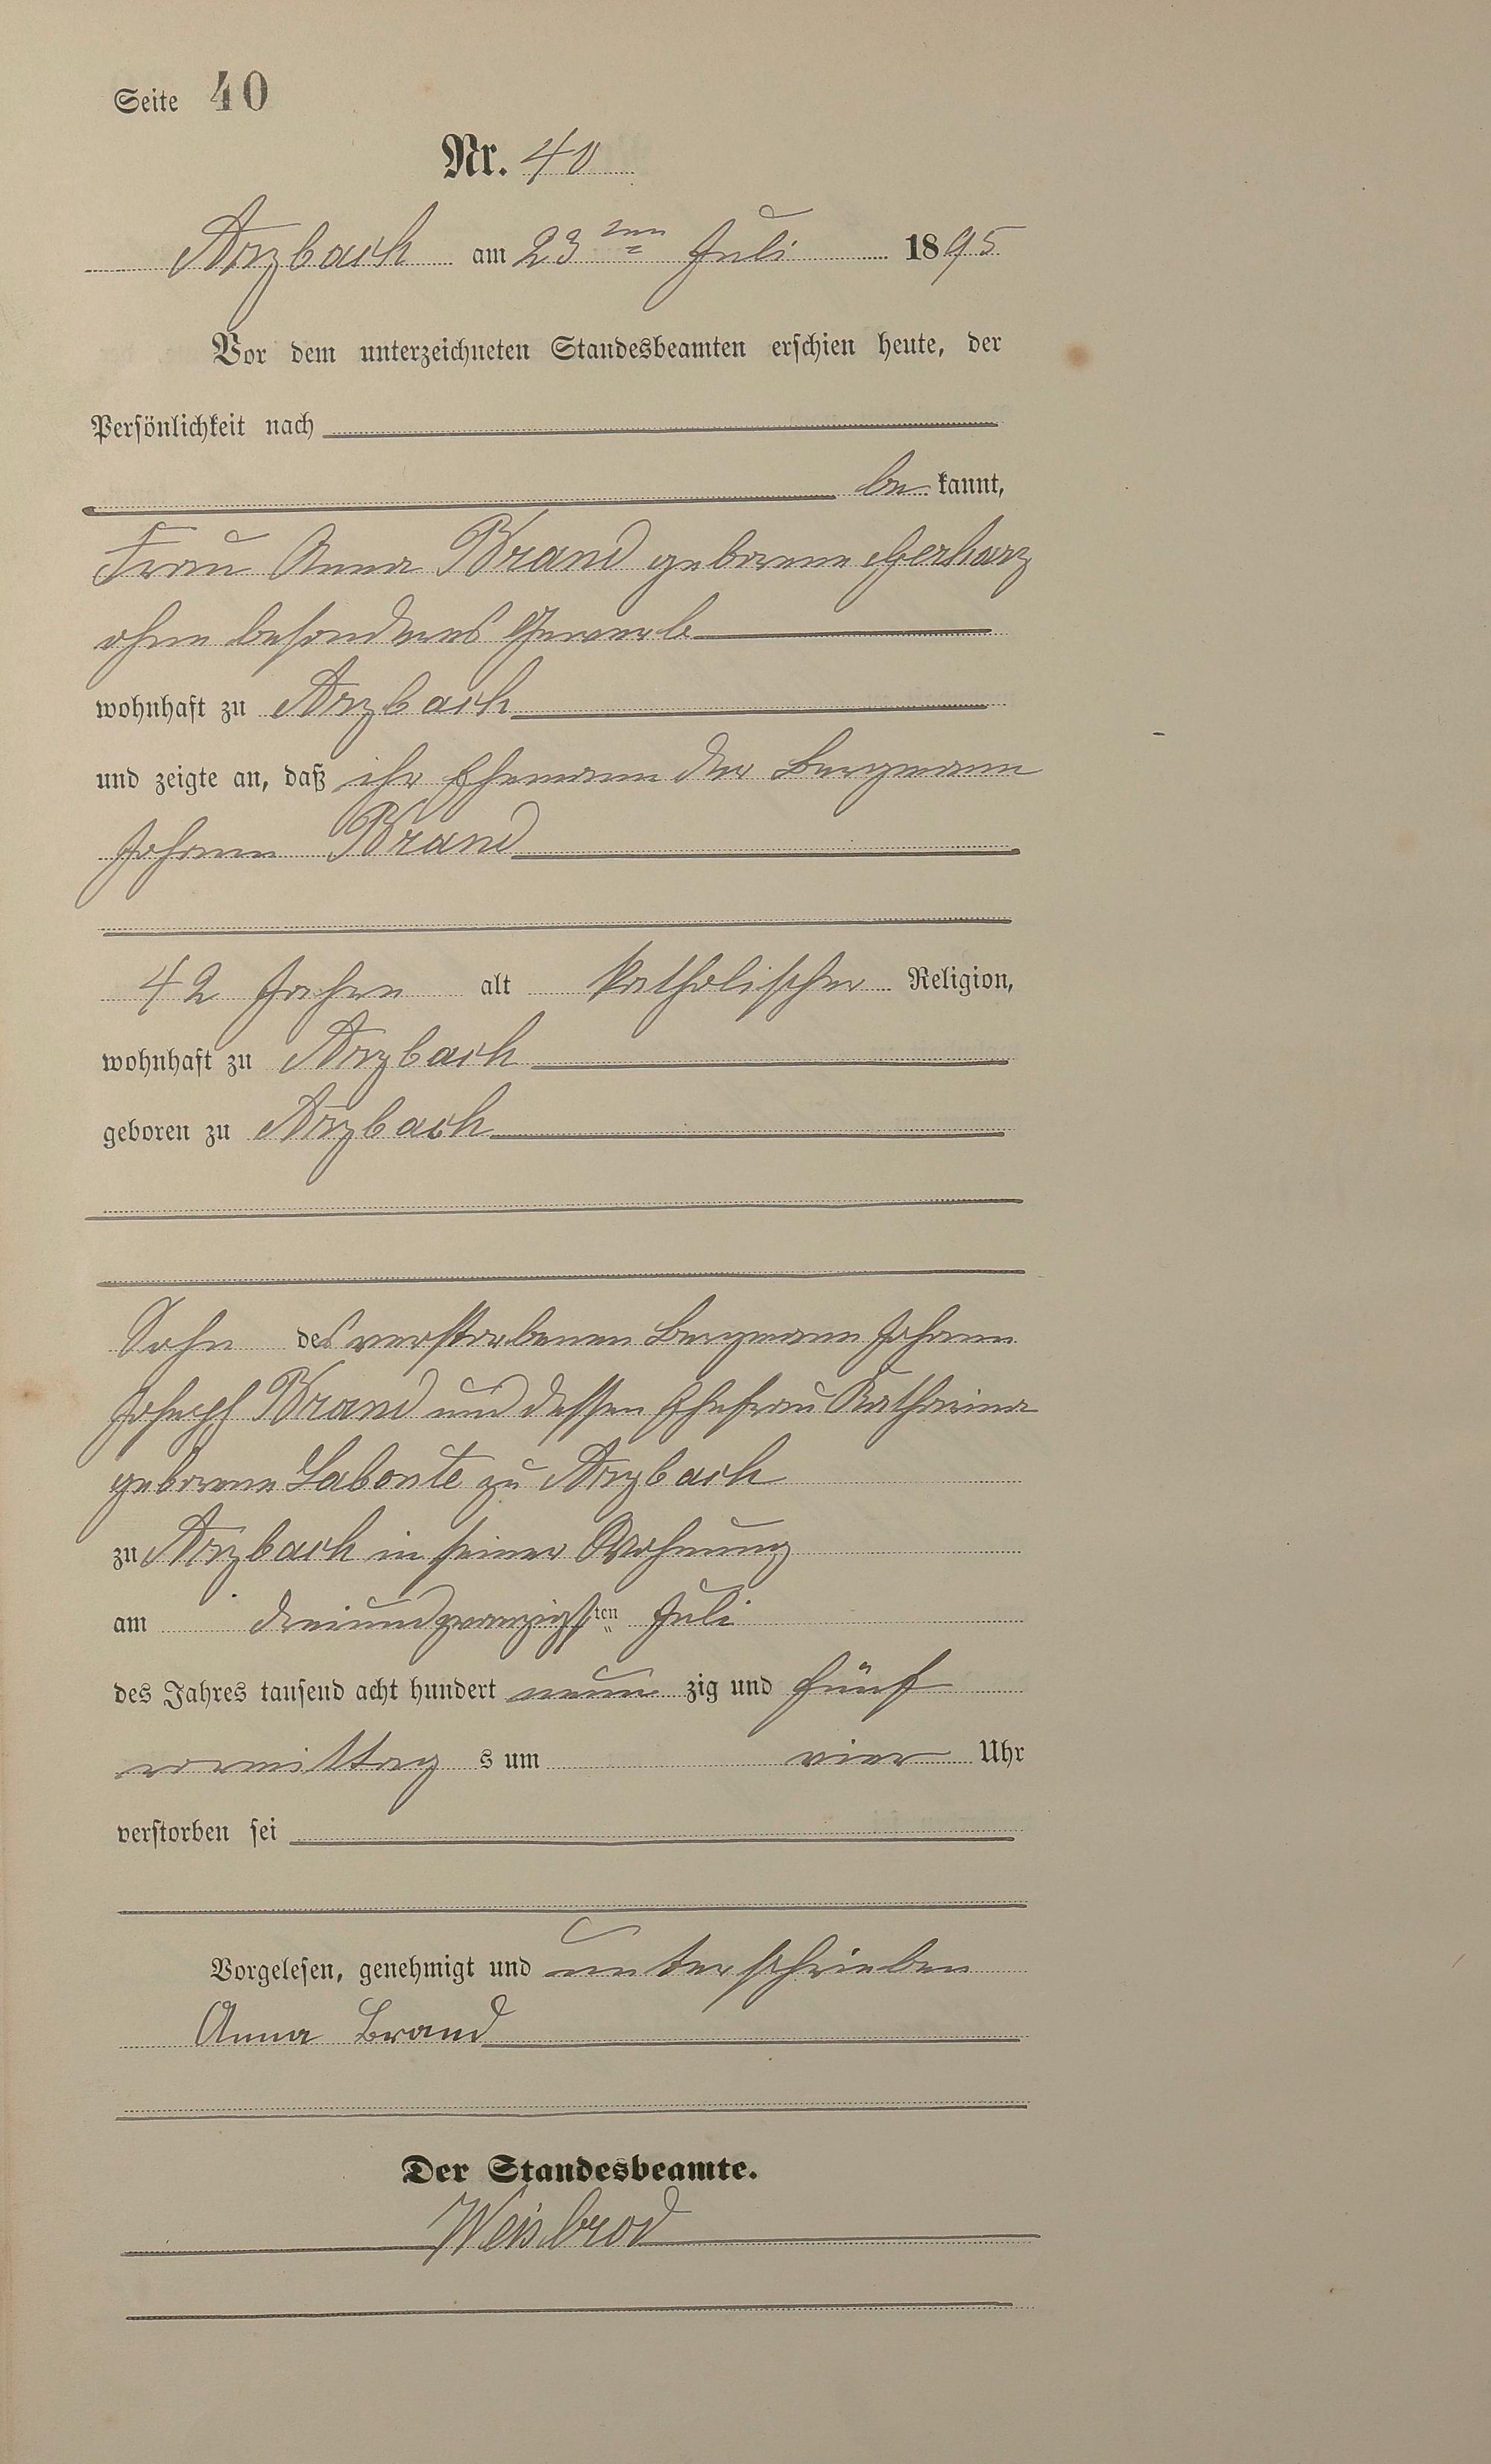 Seite 40
Nr. 40
Arzbach am 23ten Juli 1895
Vor dem unterzeichneten Standesbeamten erschien heute, der
Persönlichkeit nach
be kannt,
Frau Anna Brand geborene Gerharz
ohne besonderes Gewerbe
wohnhaft zu Arzbach
und zeigte an, daß ihr Ehemann der Bergmann
Johann Brand
42 Jahre alt katholischer Religion,
wohnhaft zu Arzbach
geboren zu Arzbach
Sohn des verstorbenen Bergmann Johann
Joseph Brand und dessen Ehefrau Katharina
geborene Labonte zu Arzbach
zu Arzbach in seiner Wohnung
am dreiundzwanzigsten Juli
des Jahres tausend acht hundert neun zig und fünf
vormittag s um vier Uhr
verstorben sei
Vorgelesen, genehmigt und unterschrieben
Anna Brand
Der Standesbeamte.
Weisbrod